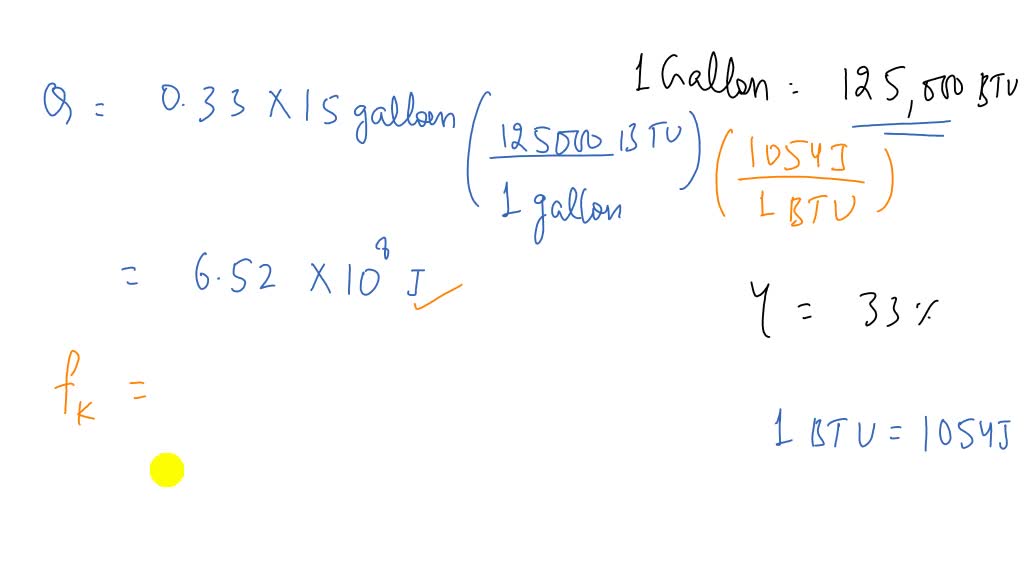 1 Gallon = 125,000 BTU
Q = 0.33 X 15 gallon (125000 BTU / 1 gallon) (1054J / 1 BTU)
= 6.52 X 10^8 J ✓
η = 33%
f_K =
1 BTU = 1054J